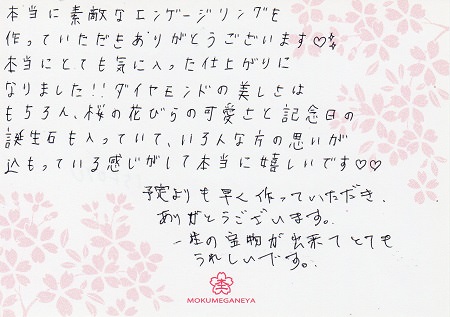 本当に素敵なエンゲージリングを
作っていただきありがとうございます♡
本当にとても気に入った仕上がりに
なりました!!ダイヤモンドの美しさは
もちろん、桜の花びらの可愛さと記念日の
誕生石も入っていて、いろんな方の思いが
込もっている感じがして本当に嬉しいです♡♡
予定よりも早く作っていただき、
ありがとうございます。
一生の宝物が出来てとても
うれしいです。
MOKUMEGANEYA